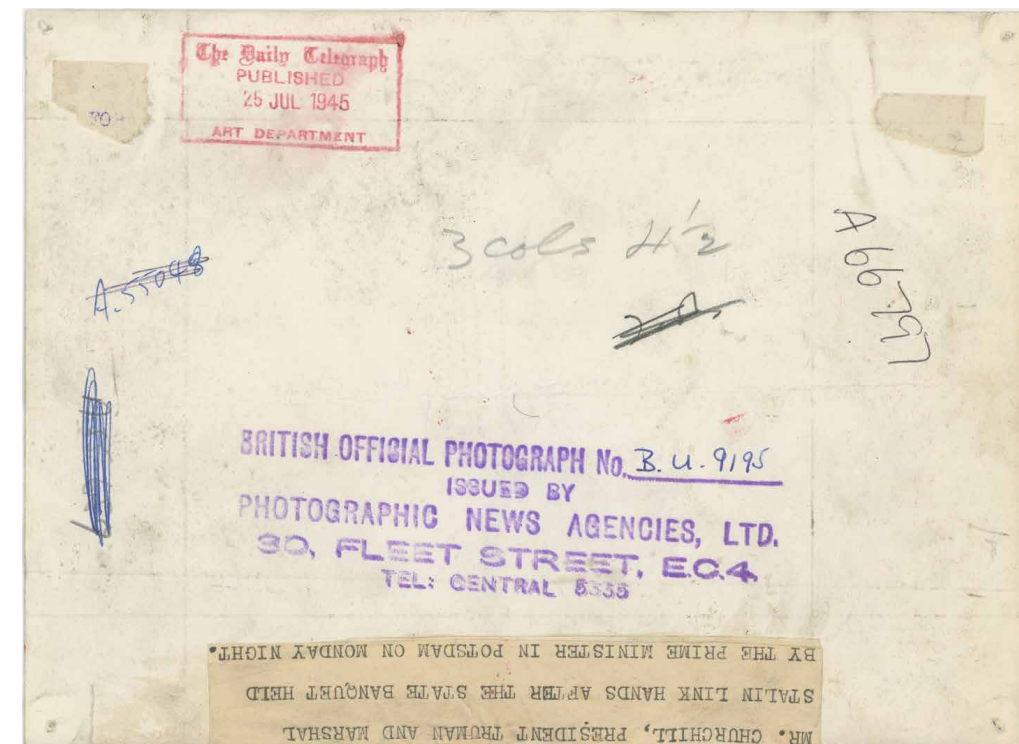 The Daily Telegraph
PUBLISHED
25 JUL 1945
ART DEPARTMENT
TO
3 cols 4½
A66797
A.55048
BRITISH OFFICIAL PHOTOGRAPH No. B.U. 9195
ISSUED BY
PHOTOGRAPHIC NEWS AGENCIES, LTD.
30, FLEET STREET, E.C.4.
TEL: CENTRAL 5335
MR. CHURCHILL, PRESIDENT TRUMAN AND MARSHAL
STALIN LINK HANDS AFTER THE STATE BANQUET HELD
BY THE PRIME MINISTER IN POTSDAM ON MONDAY NIGHT.